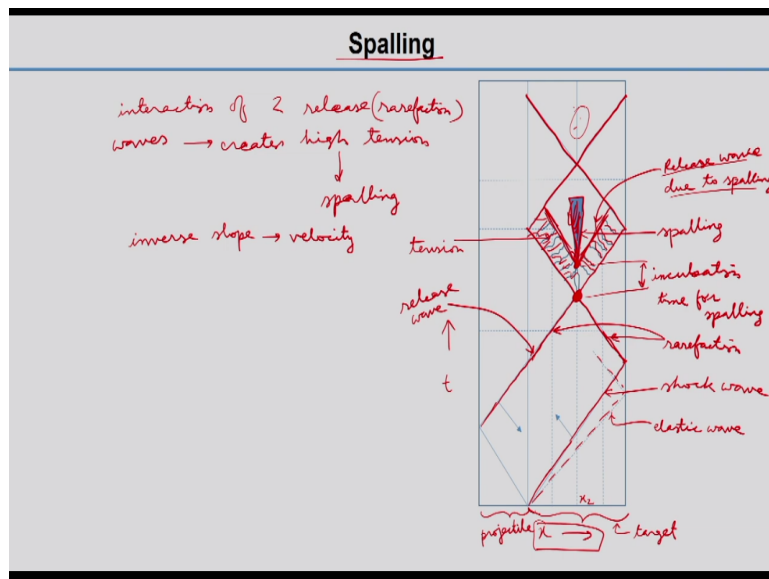 Spalling
interaction of 2 release (rarefaction)
waves → creates high tension
↓
spalling
inverse slope → velocity
Release wave
due to spalling
tension
spalling
incubation
time for
spalling
release
wave
rarefaction
t
shock wave
elastic wave
x2
projectile
x →
target